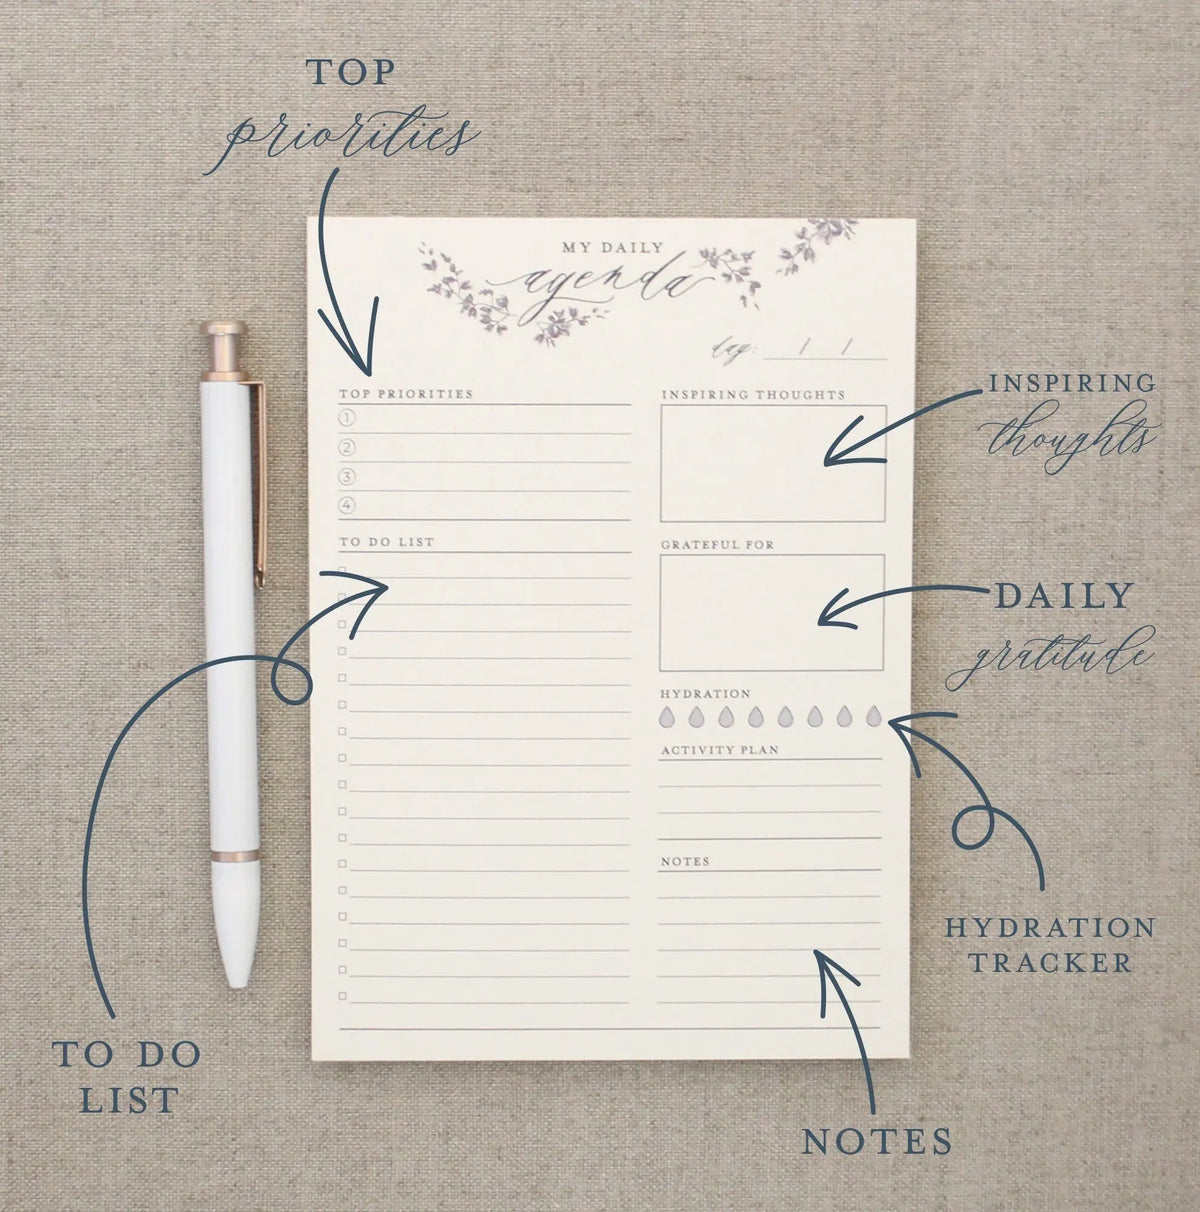 TOP
priorities
MY DAILY
agenda
day: / /
TOP PRIORITIES
1
2
3
4
TO DO LIST
INSPIRING THOUGHTS
GRATEFUL FOR
HYDRATION
ACTIVITY PLAN
NOTES
INSPIRING
thoughts
DAILY
gratitude
HYDRATION
TRACKER
TO DO
LIST
NOTES